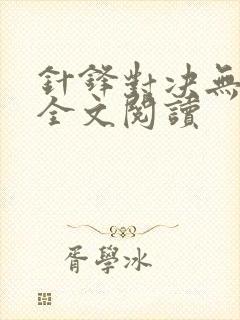 針鋒對決無
全文閱讀
胥學冰